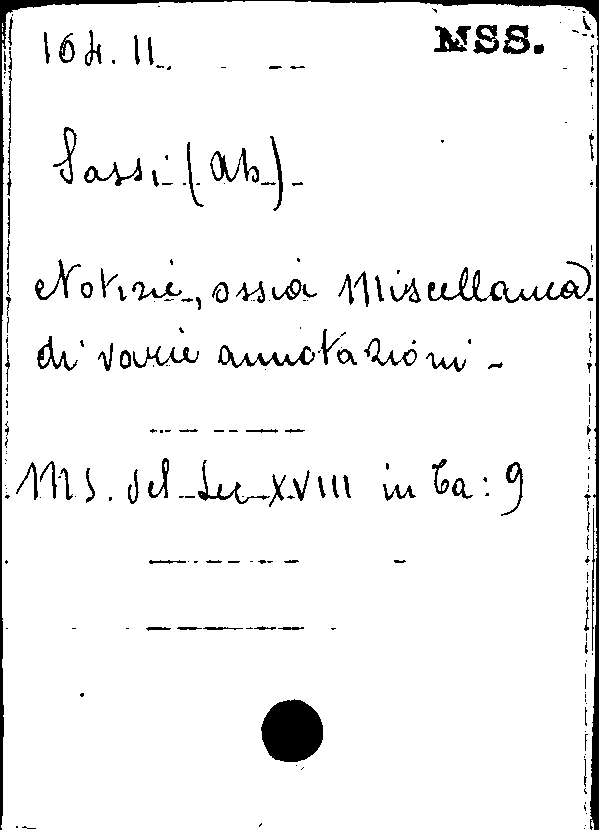 104.II MSS.
Sassi (Ab)
Notizie, ossia Miscellanea
di varie annotazioni -
MS. del Sec XVIII in Ca: 9